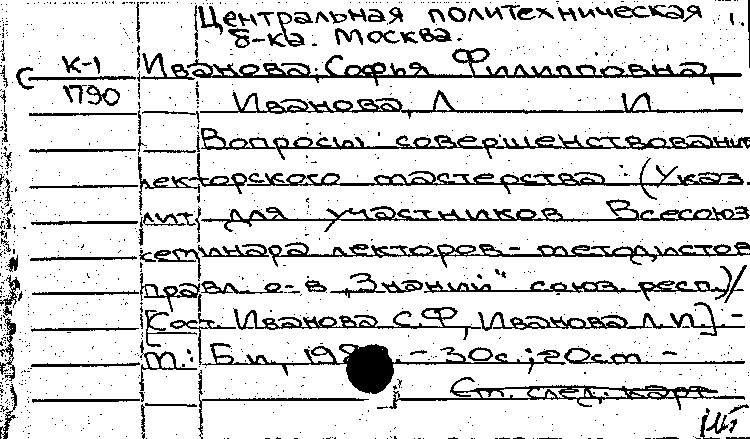 Центральная политехническая 1.
б-ка. Москва.
К-1 Иванова, Софья Филипповна,
1790 Иванова, Л И
Вопросы совершенствовани
лекторского мастерства: (Указ.
лит. для участников Всесоюз
семинара лекторов-методистов
правл. о-в „Знаний" союз. респ.)/
[Сост. Иванова С.Ф, Иванова Л.И.]. -
М.: Б.и, - 30с.; 20см -
Ст. след. карт